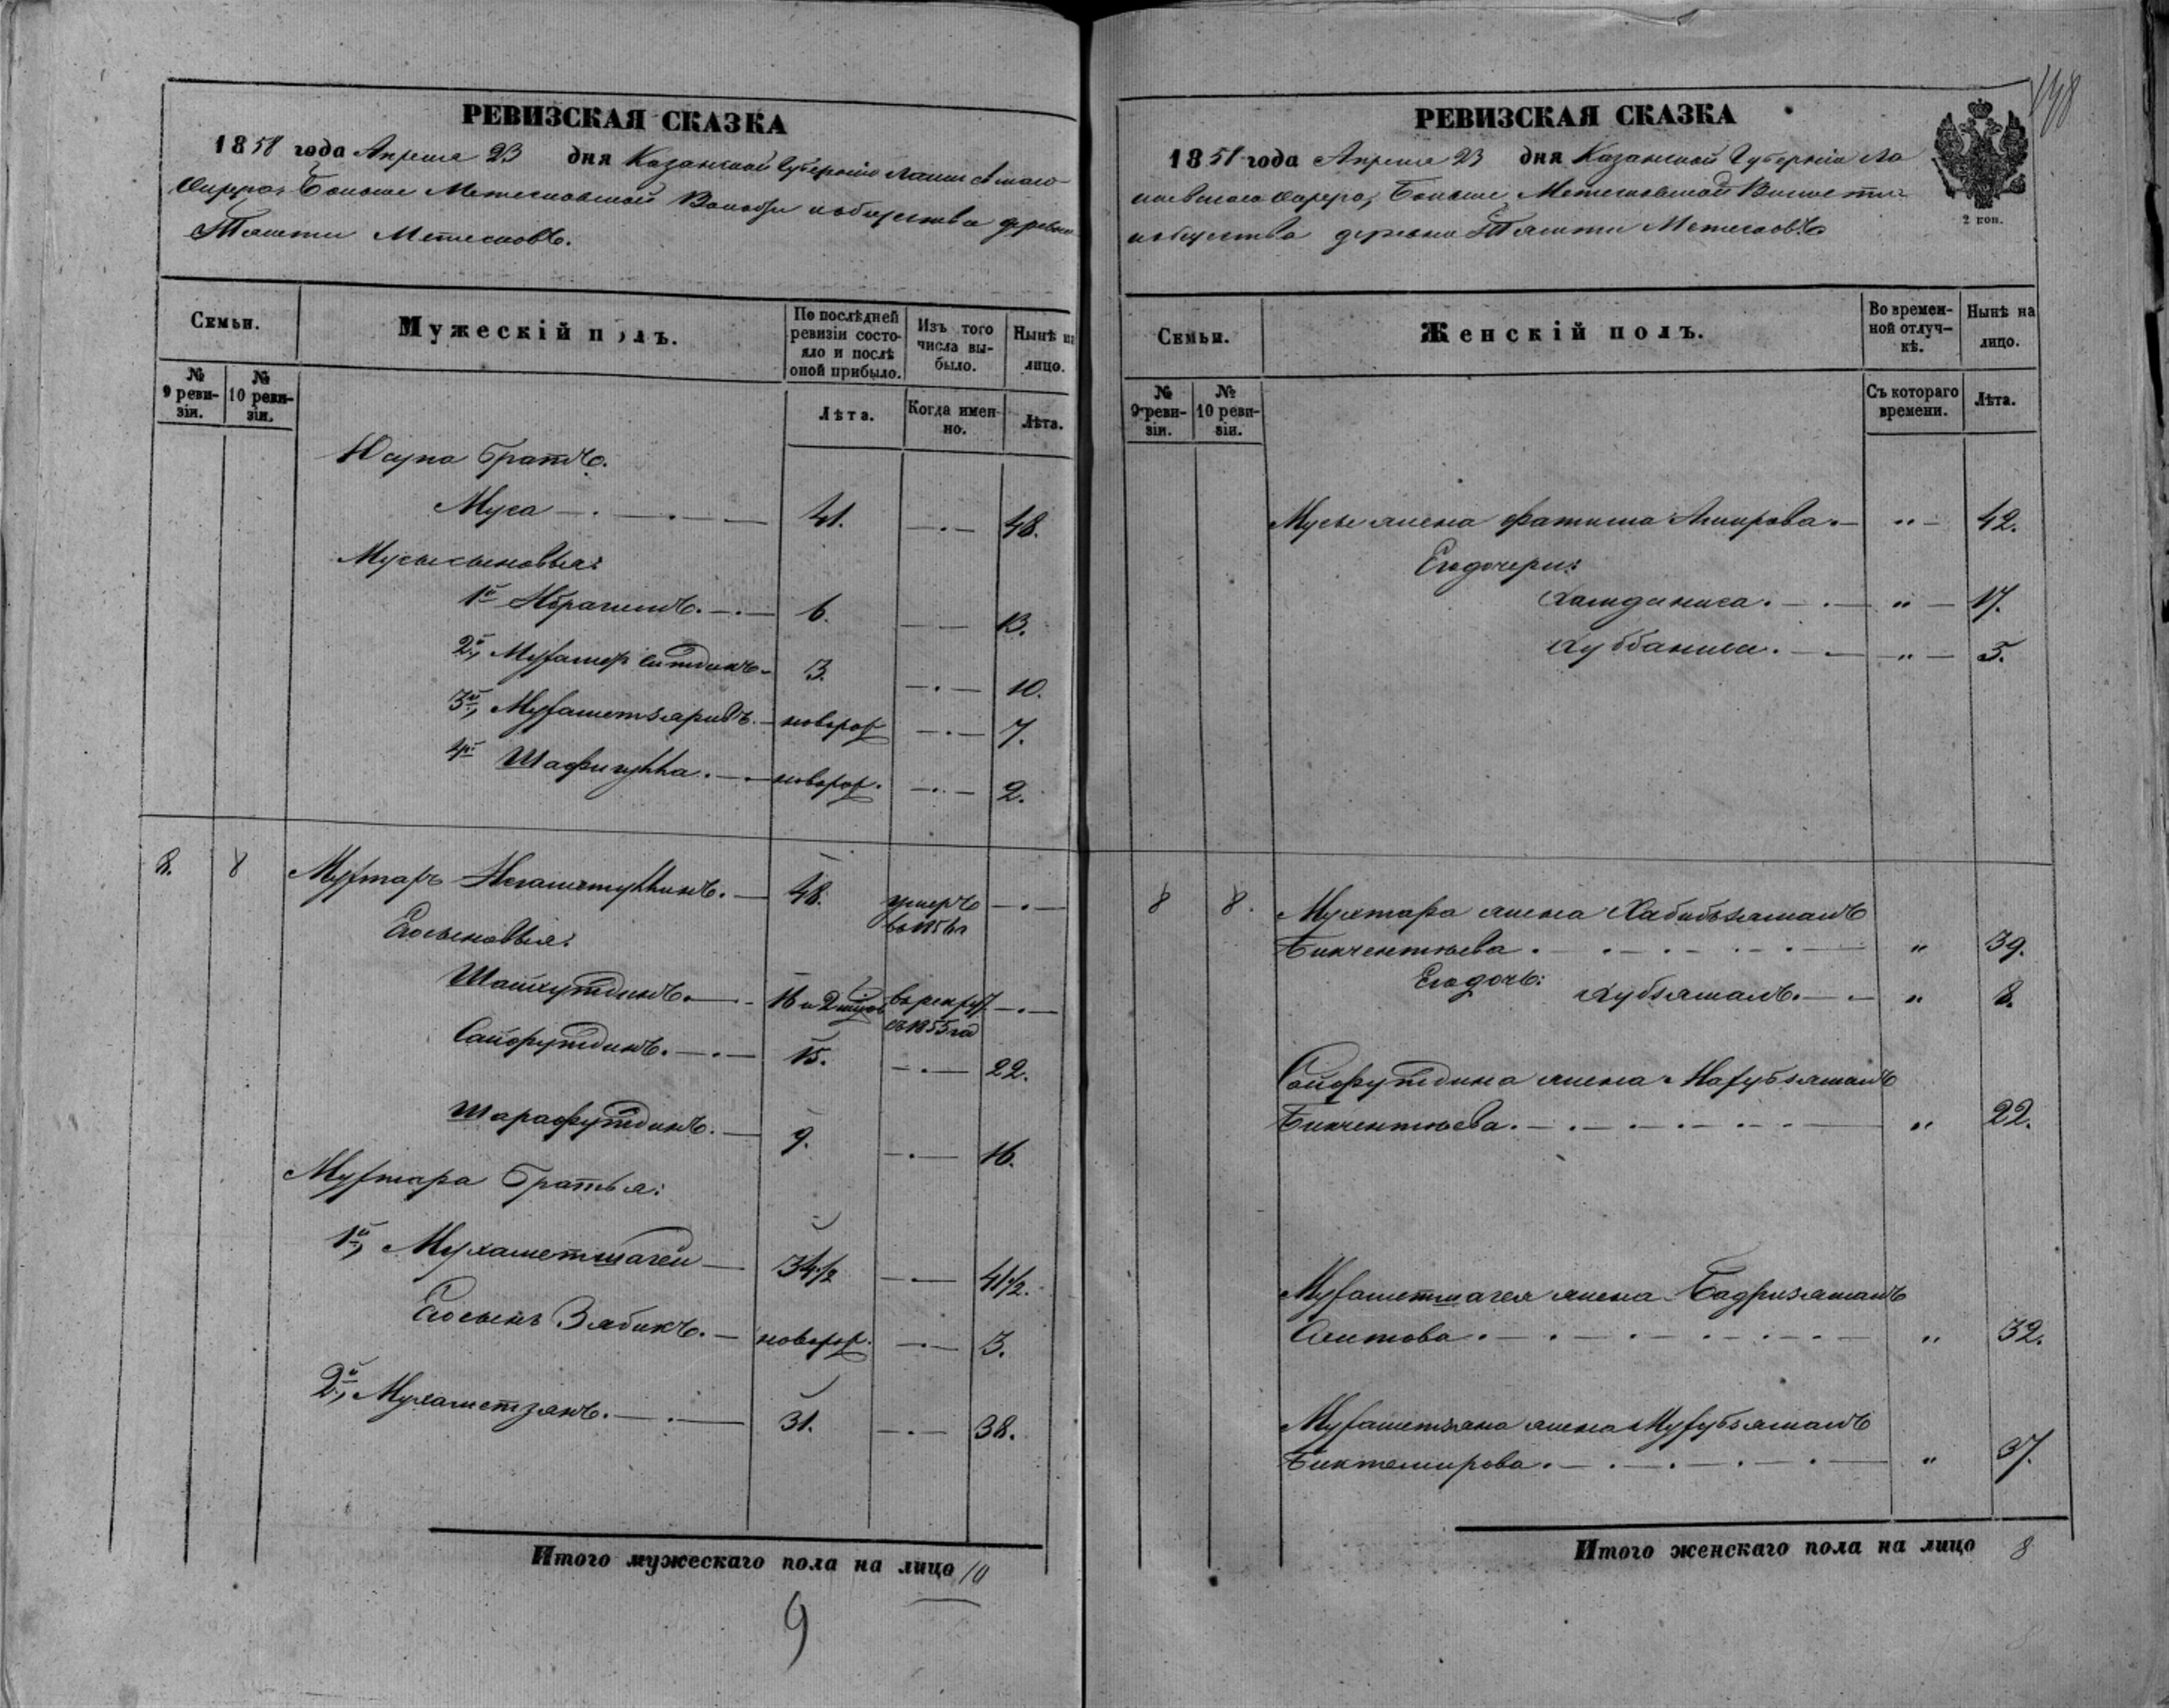 РЕВИЗСКАЯ СКАЗКА
1858 года Апреля 23 дня Казанской Губернии Лаишевскаго
Округа, Больше Метесковской Волости и общества деревни
Тямти Метесковъ.
Семьи.
Мужескій полъ.
По послѣдней ревизіи состояло и послѣ оной прибыло.
Изъ того числа выбыло.
Нынѣ на лицо.
№ 9 ревизіи.
№ 10 ревизіи.
Лѣта.
Когда именно.
Лѣта.
Юсупа братъ.
Муса 41. 48.
Мусы сыновья:
1й Ибрагимъ. 6. 13.
2й, Мухамер ситдинъ 3. 10.
3й, Мухаметзарипъ. новорож 7.
4й Шафигулла. новорож. 2.
8. 8 Мухтаръ Негаметуллинъ. 48. умеръ
въ 1856 г
Его сыновья:
Шайхутдинъ. 16 в рекрут
въ 1855 год
Сайфутдинъ. 15. 22.
Шарафутдинъ. 9. 16.
Мухтара братья:
1й, Мухаметшагей 34 1/2 41 1/2.
Его сынъ Зябикъ. новорож. 3.
2й, Мухаметзянъ. 31. 38.
Итого мужескаго пола на лицо 10
9
148
РЕВИЗСКАЯ СКАЗКА
1858 года Апреля 23 дня Казанской Губерніи Ла
ишевскаго Округа, Больше Метесковской Волости
и общества деревни Тямти Метесковъ
2 коп.
Семьи.
Женскій полъ.
Во временной отлучкѣ.
Нынѣ на лицо.
№ 9 ревизіи.
№ 10 ревизіи.
Съ котораго времени.
Лѣта.
Мусы жена Фатима Амирова. " 42.
Его дочери:
Хамдиниса. " 17.
Хуббаниса. " 5.
8 8. Мухтара жена Хабибзямалъ
Бикчентьева. " 39.
Его дочь: Хубзямалъ. " 8.
Сайфутдина жена Махубзямалъ
Бикчентьева. " 22.
Мухаметшагея жена Бадризямалъ
Аитова. " 32.
Мухаметзяна жена Мухубзямалъ
Биктемирова. " 37.
Итого женскаго пола на лицо 8